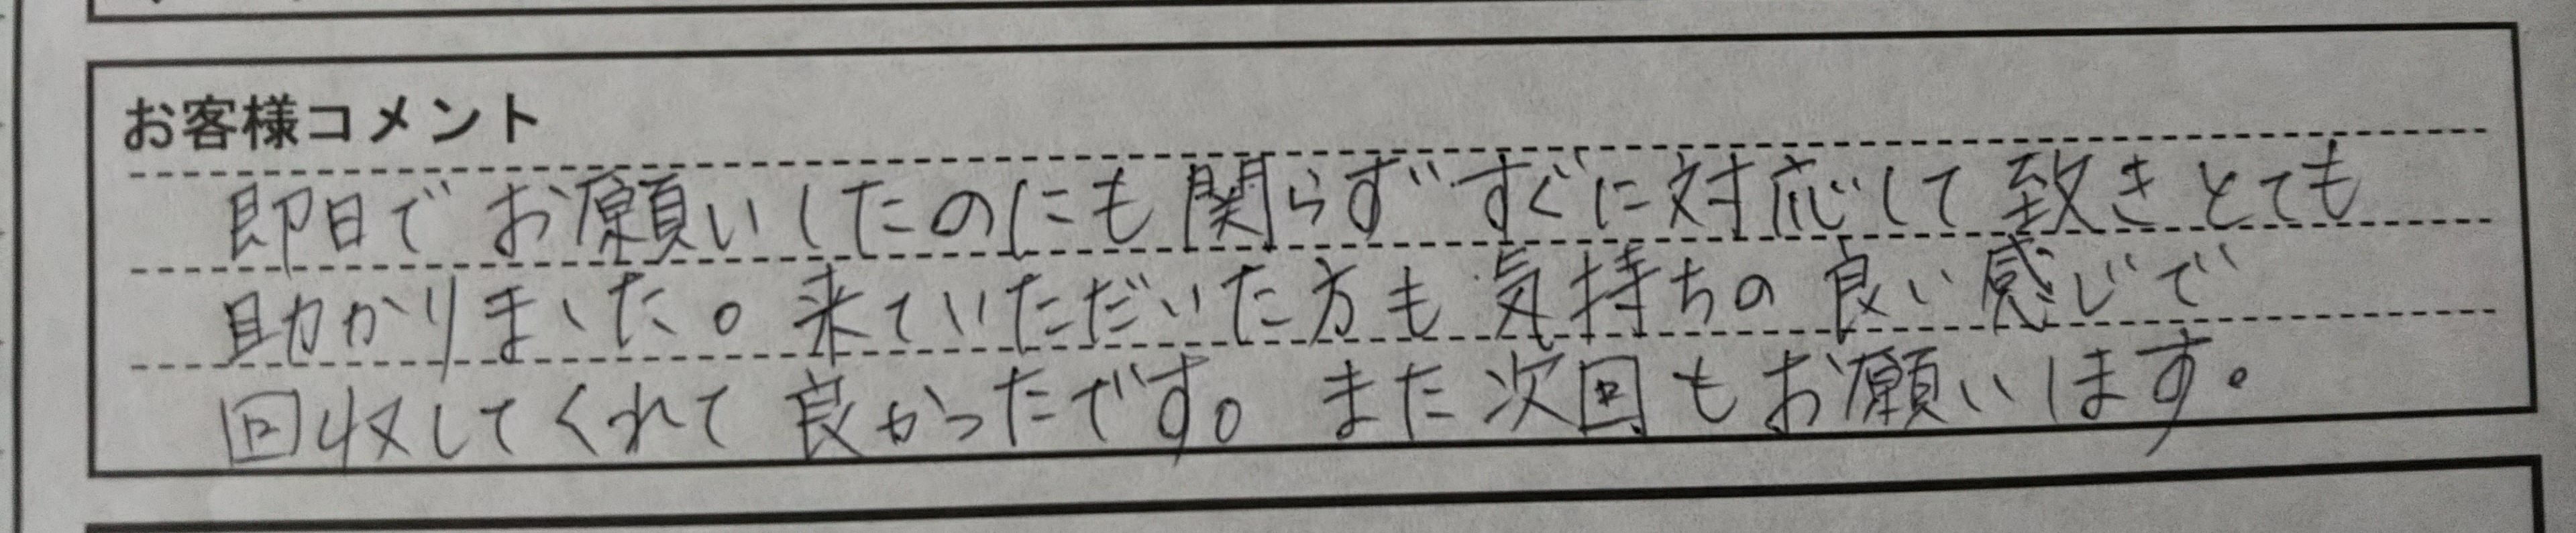 お客様コメント
即日でお願いしたのにも関らずすぐに対応して致きとても
助かりました。来ていただいた方も気持ちの良い感じで
回収してくれて良かったです。また次回もお願いします。